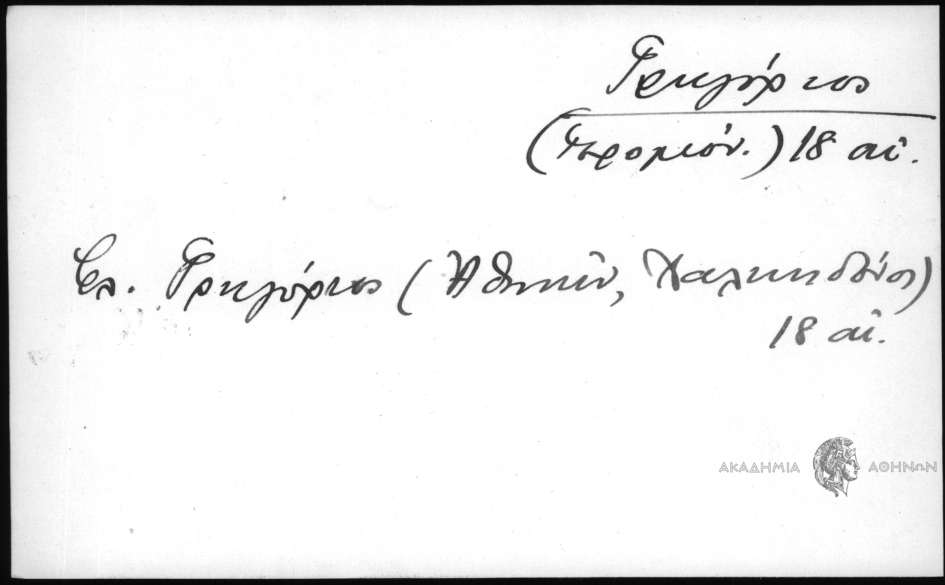 Γρηγόριος
(Ιερομόν.) 18 αἰ.
Βλ. Γρηγόριος (Ἀθηνῶν, Χαλκηδόνος)
18 αἰ.
ΑΚΑΔΗΜΙΑ ΑΘΗΝΩΝ